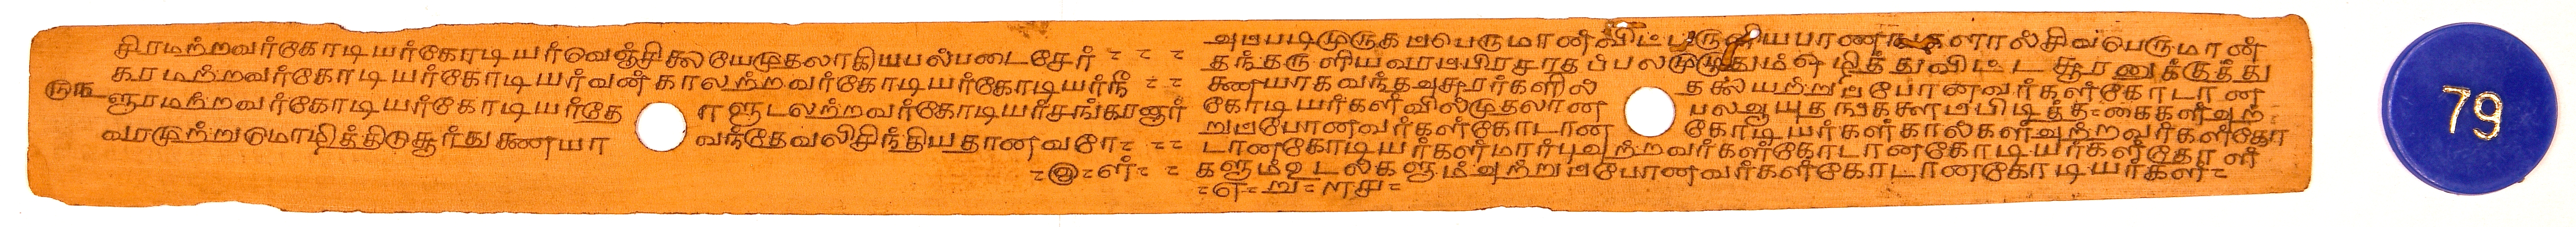 சிரமற்றவர்கோடியர்கோடியர்வெஞ்சிலையேமுதலாகியபல்படைசேர் = = =
கரமற்றவர்கோடியர்கோடியர்வன்காலற்றவர்கோடியர்கோடியர்நீ = =
ளுரமற்றவர்கோடியர்கோடியர்தோளுடலற்றவர்கோடியர்சங்கரனூர்
வரமுற்றுமொழித்திடுசூர்துணையா வந்தேவலிசிந்தியதானவரே = = =
அப்படிமுருகப்பெருமான்விட்டருளியபாணங்களால்சிவபெருமான்
தந்தருளியவரப்பிரசாதப்பலமுழுதும்ஒழித்துவிட்டசூரனுக்குத்து
ணையாகவந்தஅசுரர்களில் தலையற்றுப்போனவர்கள்கோடான
கோடியர்கள்வில்முதலான பலஆயுதங்களைப்பிடித்த=கைகள்அற்
றுப்போனவர்கள்கோடான கோடியர்கள்கால்கள்அற்றவர்கள்கோ
டானகோடியர்கள்மார்புஅற்றவர்கள்கோடானகோடியர்கள்தோள்
களும்உடல்களும்அற்றுப்போனவர்கள்கோடானகோடியர்கள்=
79